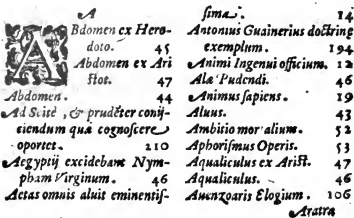 A
ABdomen ex Hero-
doto. 45
Abdomen ex Ari
stot. 47
Abdomen. 44
Ad Scitè, & prudẽter conij-
ciendum quæ cognoscere
oportet. 210
Aegyptij excidebant Nym-
pham Virginum. 46
Aetas omnis aluit eminentis-
sima. 14
Antonius Guainerius doctrinę
exemplum. 194
Animi Ingenui officium. 12
Alæ Pudendi. 46
Animus sapiens. 19
Aluus. 43
Ambitio mor alium. 52
Aphorismus Operis. 53
Aqualiculus ex Arist. 47
Aqualiculus. 46
Auenzoaris Elogium. 106
Aratra